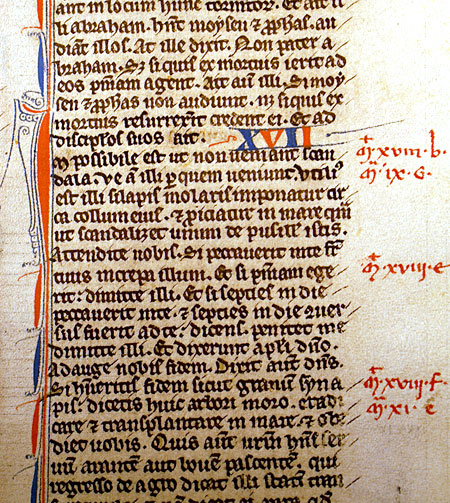 ant in locum hunc tormētoꝝ. Et ait il
li abraham. hn̄t moysen ⁊ ꝓphas. au
diāt illos. At ille dixit. Non pater a
braham. Sꝫ si quis ex mortuis ierit ad
eos pn̄iam agent. Ait aūt illi. Si moy
sen ⁊ ꝓphas non audiunt. neqꝫ si quis ex
mortuis resurrexerit credent ei. Et ad
discip̄los suos ait. XVII
Impossibile est ut non veniant scan
dala. Ve aūt illi per quem veniunt. Utiliꝰ
est illi si lapis molaris imponatur cir
ca collum eius. ⁊ ꝓiciatur in mare qm̄
ut scandalizet unum de pusillis istis.
Attendite nobis. Si peccaverit in te fr̄
tuus increpa illum. Et si pn̄iam ege
rit: dimitte illi. Et si septies in die
peccaverit in te. ⁊ septies in die ꝯver
sus fuerit ad te: dicens. penitet me
dimitte illi. Et dixerunt apl̄i dn̄o.
Adauge nobis fidem. Dixit aūt dn̄s.
Si hueritis fidem sicut granum syna
pis: dicetis huic arbori moro. eradi
care ⁊ transplantare in mare. ⁊ obe
diet uobis. Quis aūt urm̄ hn̄s ser
uum arantē aut bouē pascentē. qui
regresso de agro dicat illi statim tran
m̄. xviii. b.
m̄. ix. G.
m̄. xviii. e
m̄. xviii. f.
m̄. xi. e